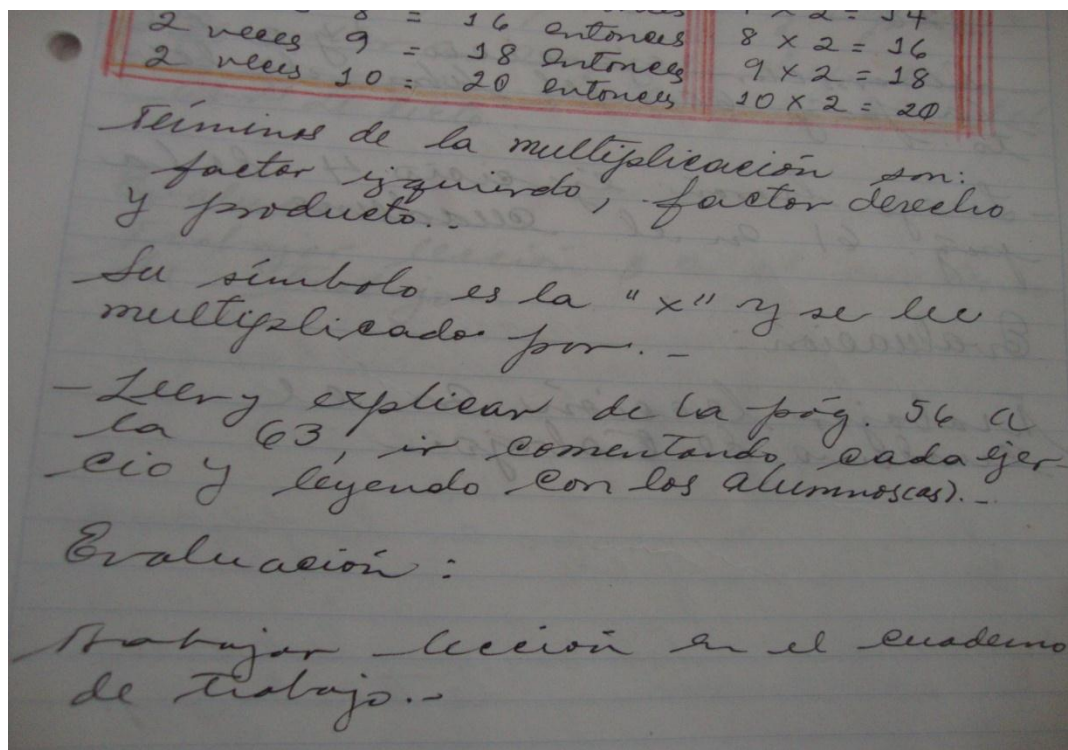 8 = 16 entonces
2 veces 9 = 18 entonces
2 veces 10 = 20 entonces
x 2 = 14
8 x 2 = 16
9 x 2 = 18
10 x 2 = 20
Términos de la multiplicación son:
factor izquierdo, factor derecho
y producto..
Su símbolo es la "x" y se lee
multiplicado por. -
- Leer y explicar de la pág. 56 a
la 63, ir comentando cada ejer-
cio y leyendo con los alumnos(as). -
Evaluación :
Trabajar lección en el cuaderno
de trabajo. -